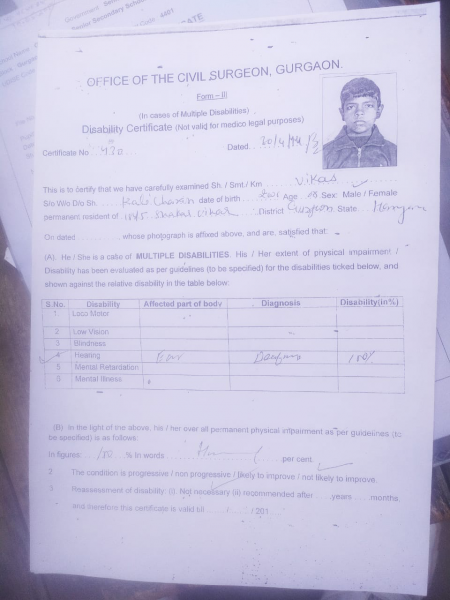 4401
OFFICE OF THE CIVIL SURGEON, GURGAON.
Form – III
(In cases of Multiple Disabilities)
Disability Certificate (Not valid for medico legal purposes)
Certificate No 420 Dated
This is to certify that we have carefully examined Sh. / Smt./ Km Vikas
S/o W/o D/o Sh. date of birth Age Sex: Male / Female
permanent resident of District Gurgaon State Haryana
On dated whose photograph is affixed above, and are, satisfied that:
(A). He / She is a case of MULTIPLE DISABILITIES. His / Her extent of physical impairment /
Disability has been evaluated as per guidelines (to be specified) for the disabilities ticked below, and
shown against the relative disability in the table below:
S.No. Disability Affected part of body Diagnosis Disability(in%)
1 Loco Motor
2 Low Vision
3 Blindness
4 Hearing Ear 100%
5 Mental Retardation
6 Mental Illness
(B) In the light of the above, his / her over all permanent physical impairment as per guidelines (to
be specified) is as follows:
In figures: 100 % In words per cent.
2. The condition is progressive / non progressive / likely to improve / not likely to improve.
3. Reassessment of disability (i). Not necessary (ii) recommended after ....years ....months,
and therefore this certificate is valid till ..../..../201